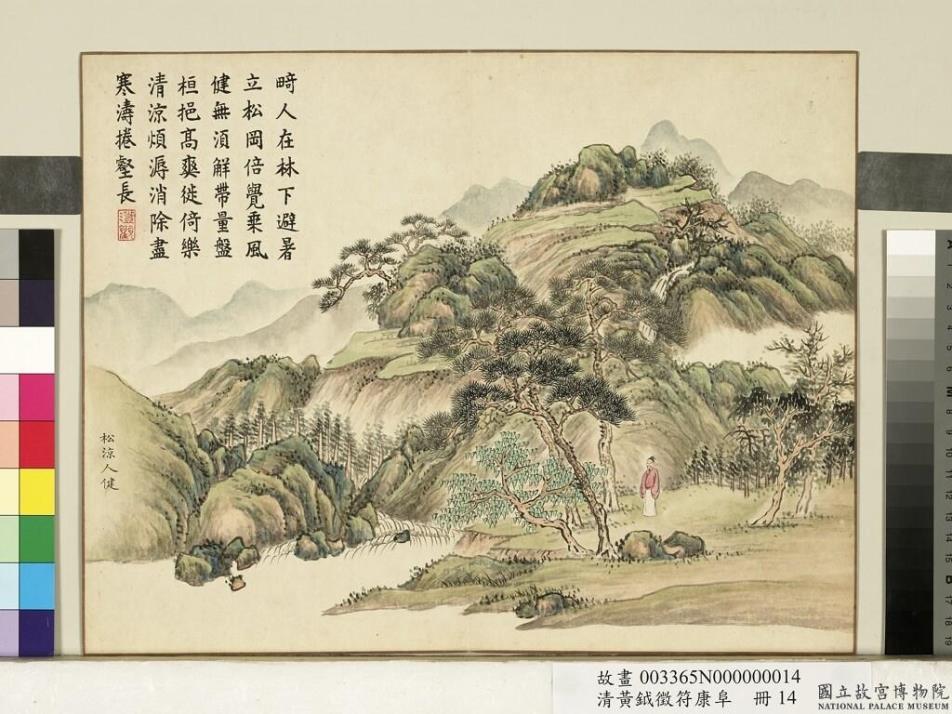 畸人在林下避暑
立松岡倍覺乘風
健無須解帶量盤
桓挹高爽徙倚樂
清涼煩溽消除盡
寒濤捲壑長
松涼人健
故畫 003365N000000014
清黃鉞徵符康阜 冊 14
國立故宮博物院
NATIONAL PALACE MUSEUM